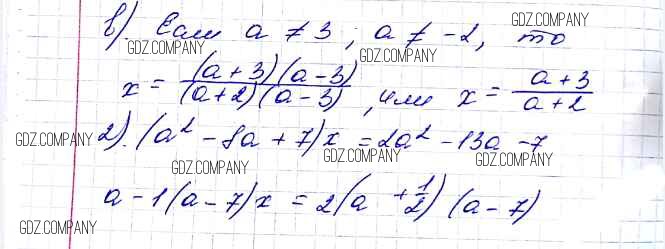 в). Если a ≠ 3 ; a ≠ -2, то
x = (a+3)(a-3)/(a+2)(a-3), или x = a+3/a+2
2). (a² - 8a + 7)x = 2a² - 13a - 7
a - 1(a - 7)x = 2(a + 1/2)(a - 7)
GDZ.COMPANY
GDZ.COMPANY
GDZ.COMPANY
GDZ.COMPANY
GDZ.COMPANY
GDZ.COMPANY
GDZ.COMPANY
GDZ.COMPANY
GDZ.COMPANY
GDZ.COMPANY